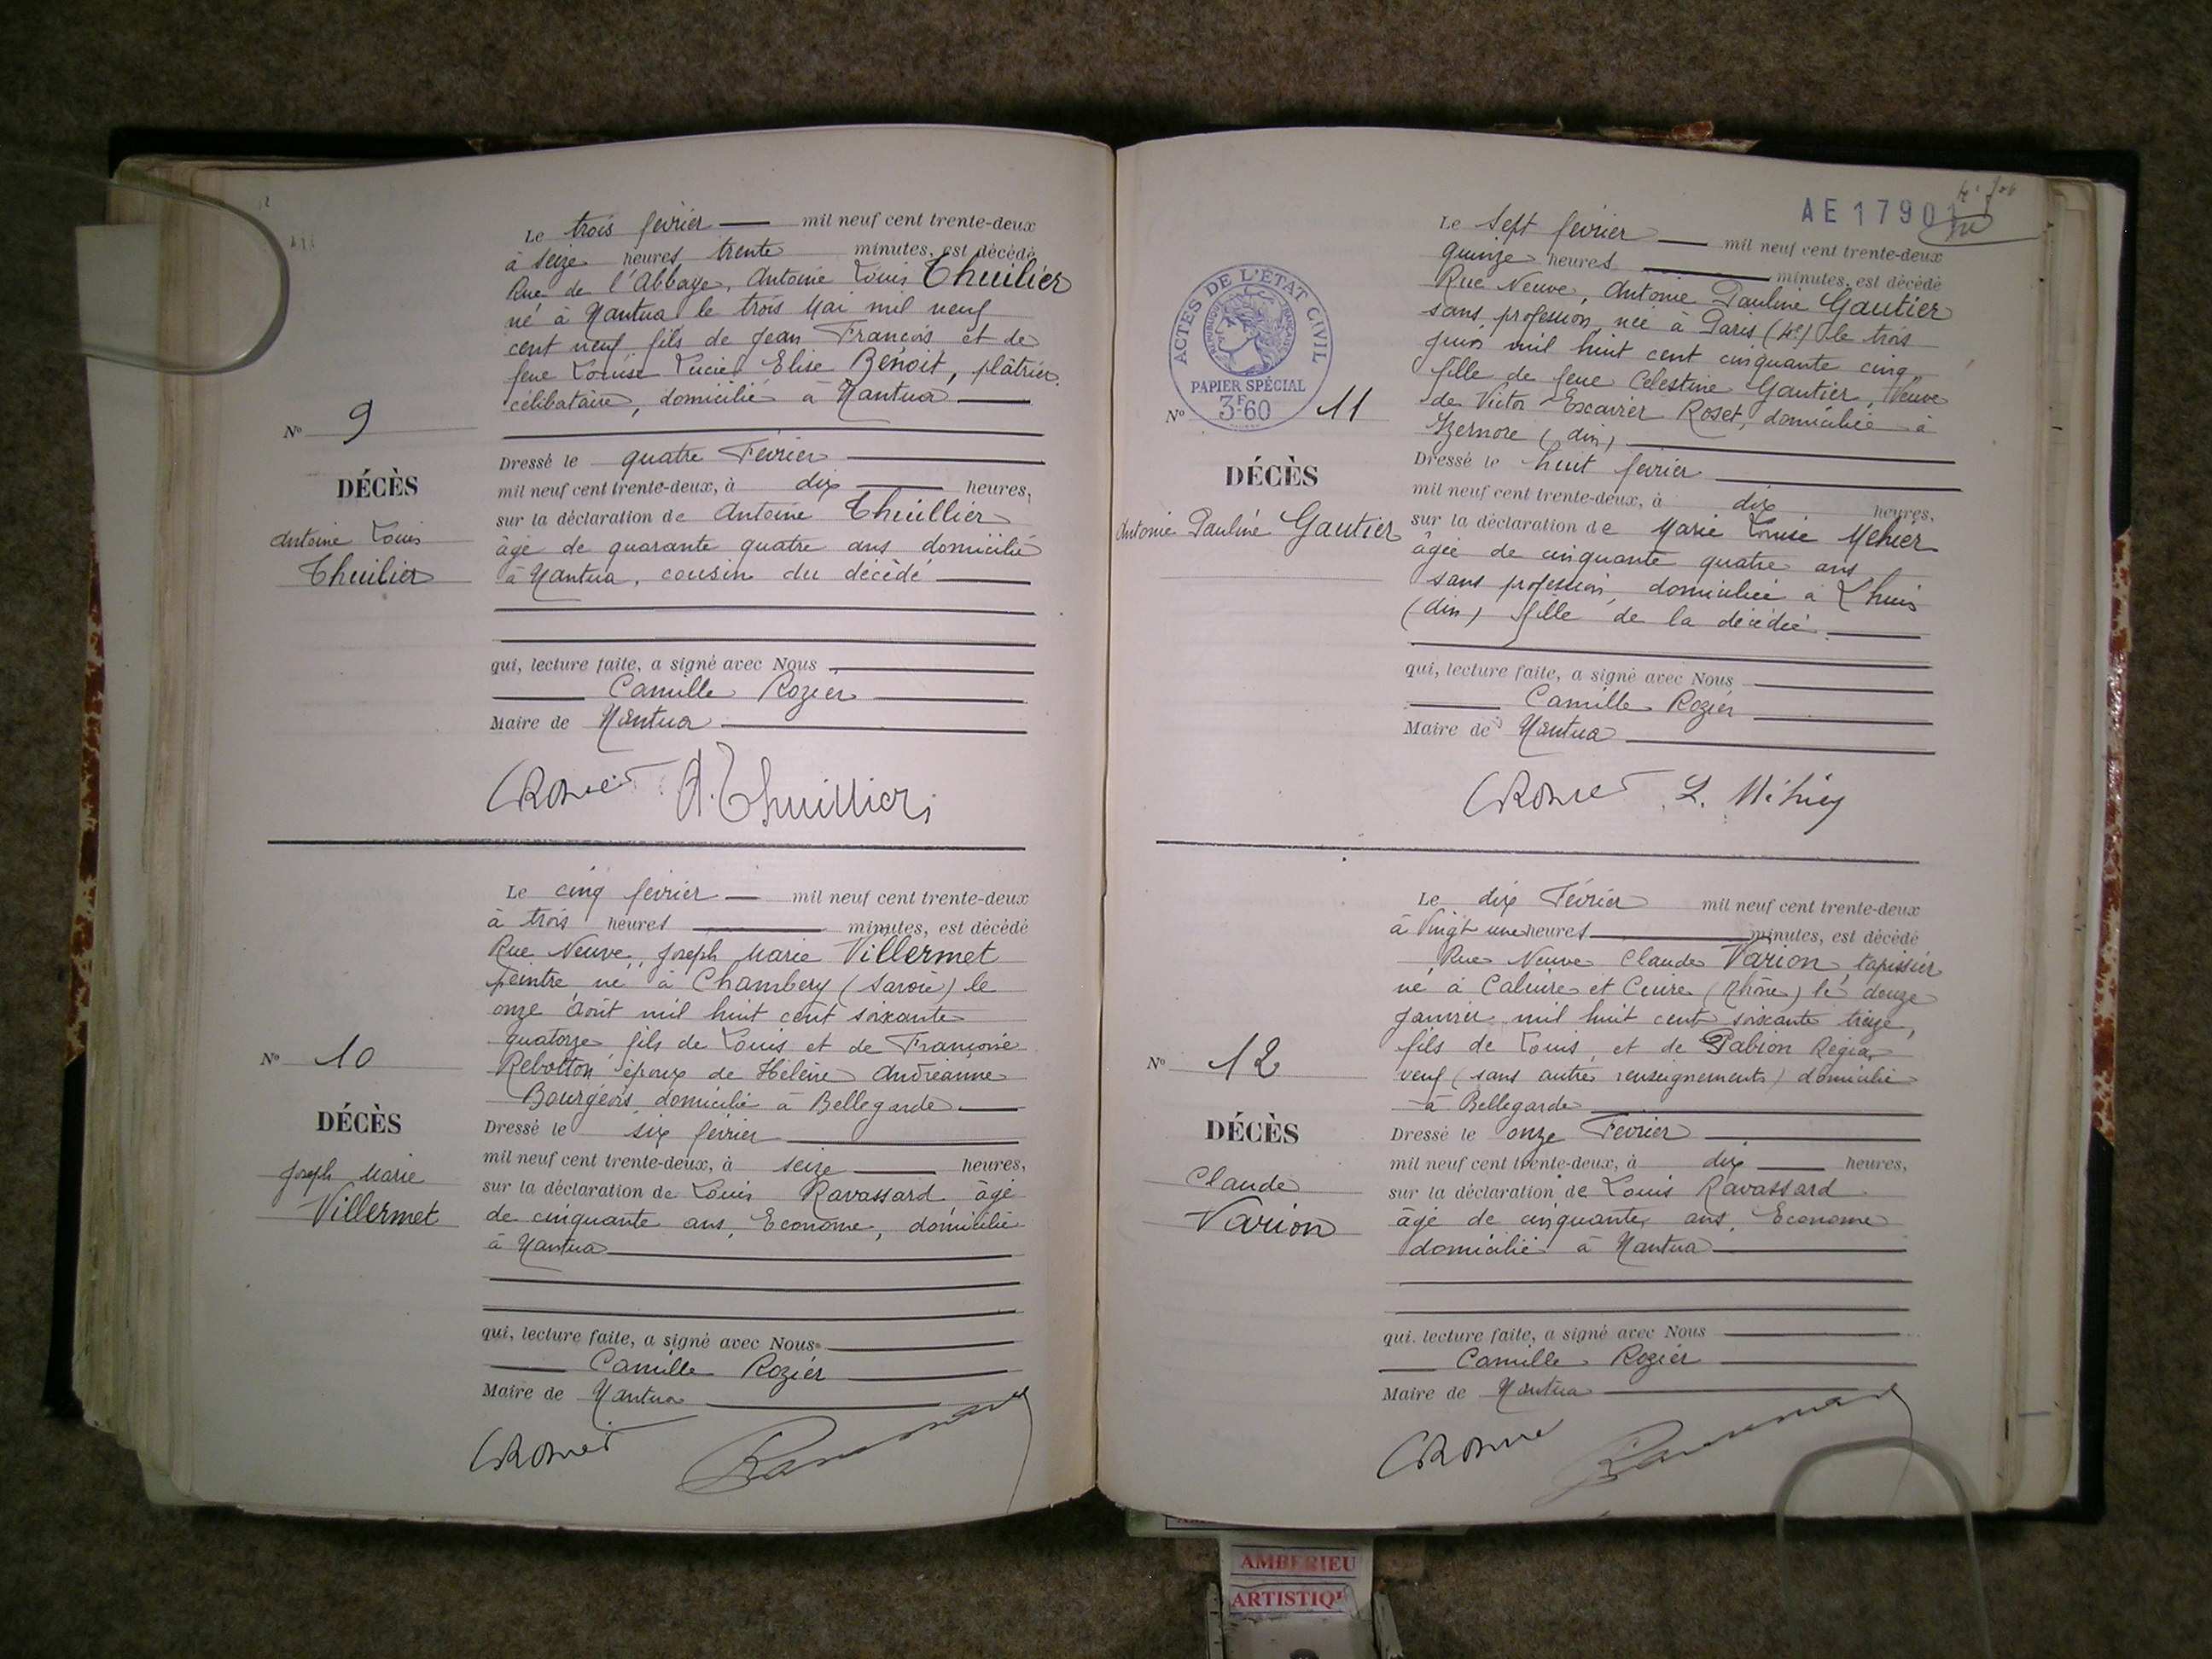 Le trois février mil neuf cent trente-deux
à seize heures trente minutes, est décédé
Rue de l'Abbaye, Antoine Louis Thuilier
né à Nantua le trois Mai mil neuf
cent neuf fils de Jean François et de
feue Louise Lucie Elise Benoit, plâtrier
célibataire, domicilié à Nantua
N° 9
DÉCÈS
Antoine Louis
Thuilier
Dressé le quatre Février
mil neuf cent trente-deux, à dix heures,
sur la déclaration de Antoine Thuillier
âgé de quarante quatre ans domicilié
à Nantua, cousin du décédé
qui, lecture faite, a signé avec Nous
Camille Rozier
Maire de Nantua
A. Thuillier
Le cinq février mil neuf cent trente-deux
à trois heures minutes, est décédé
Rue Neuve, Joseph Marie Villermet
peintre, né à Chambery (Savoie) le
onze Août mil huit cent soixante
quatorze fils de Louis et de Françoise
Rebotton époux de Hélène Andréanne
Bourgeois domicilié à Bellegarde
N° 10
DÉCÈS
Joseph Marie
Villermet
Dressé le six février
mil neuf cent trente-deux, à seize heures,
sur la déclaration de Louis Ravassard âgé
de cinquante ans, Econome, domicilié
à Nantua
qui, lecture faite, a signé avec Nous
Camille Rozier
Maire de Nantua
AE 1790
Le Sept février mil neuf cent trente-deux
quinze heures minutes, est décédé
Rue Neuve, Antonie Pauline Gautier
sans profession née à Paris (4e) le trois
juin mil huit cent cinquante cinq
fille de feue Celestine Gautier, Veuve
de Victor Excavier Roset, domiciliée à
Izernore (Ain)
ACTES DE L'ÉTAT CIVIL
RÉPUBLIQUE FRANÇAISE
PAPIER SPÉCIAL
3F60
N° 11
DÉCÈS
Antonie Pauline Gautier
Dressé le huit février
mil neuf cent trente-deux, à dix heures,
sur la déclaration de Marie Louise Mehier
âgée de cinquante quatre ans
sans profession, domiciliée à Lhuis
(Ain) fille de la décédée
qui, lecture faite, a signé avec Nous
Camille Rozier
Maire de Nantua
L. Méhier
Le dix Février mil neuf cent trente-deux
à Vingt une heures minutes, est décédé
Rue Neuve Claude Varion, tapissier
né à Caluire et Cuire (Rhône) le douze
janvier mil huit cent soixante treize,
fils de Louis, et de Pabion Régia,
veuf (sans autre renseignements) domicilié
à Bellegarde
N° 12
DÉCÈS
Claude
Varion
Dressé le onze Février
mil neuf cent trente-deux, à dix heures,
sur la déclaration de Louis Ravassard
âgé de cinquante ans, Econome
domicilié à Nantua
qui, lecture faite, a signé avec Nous
Camille Rozier
Maire de Nantua
AMBERIEU
ARTISTIQ